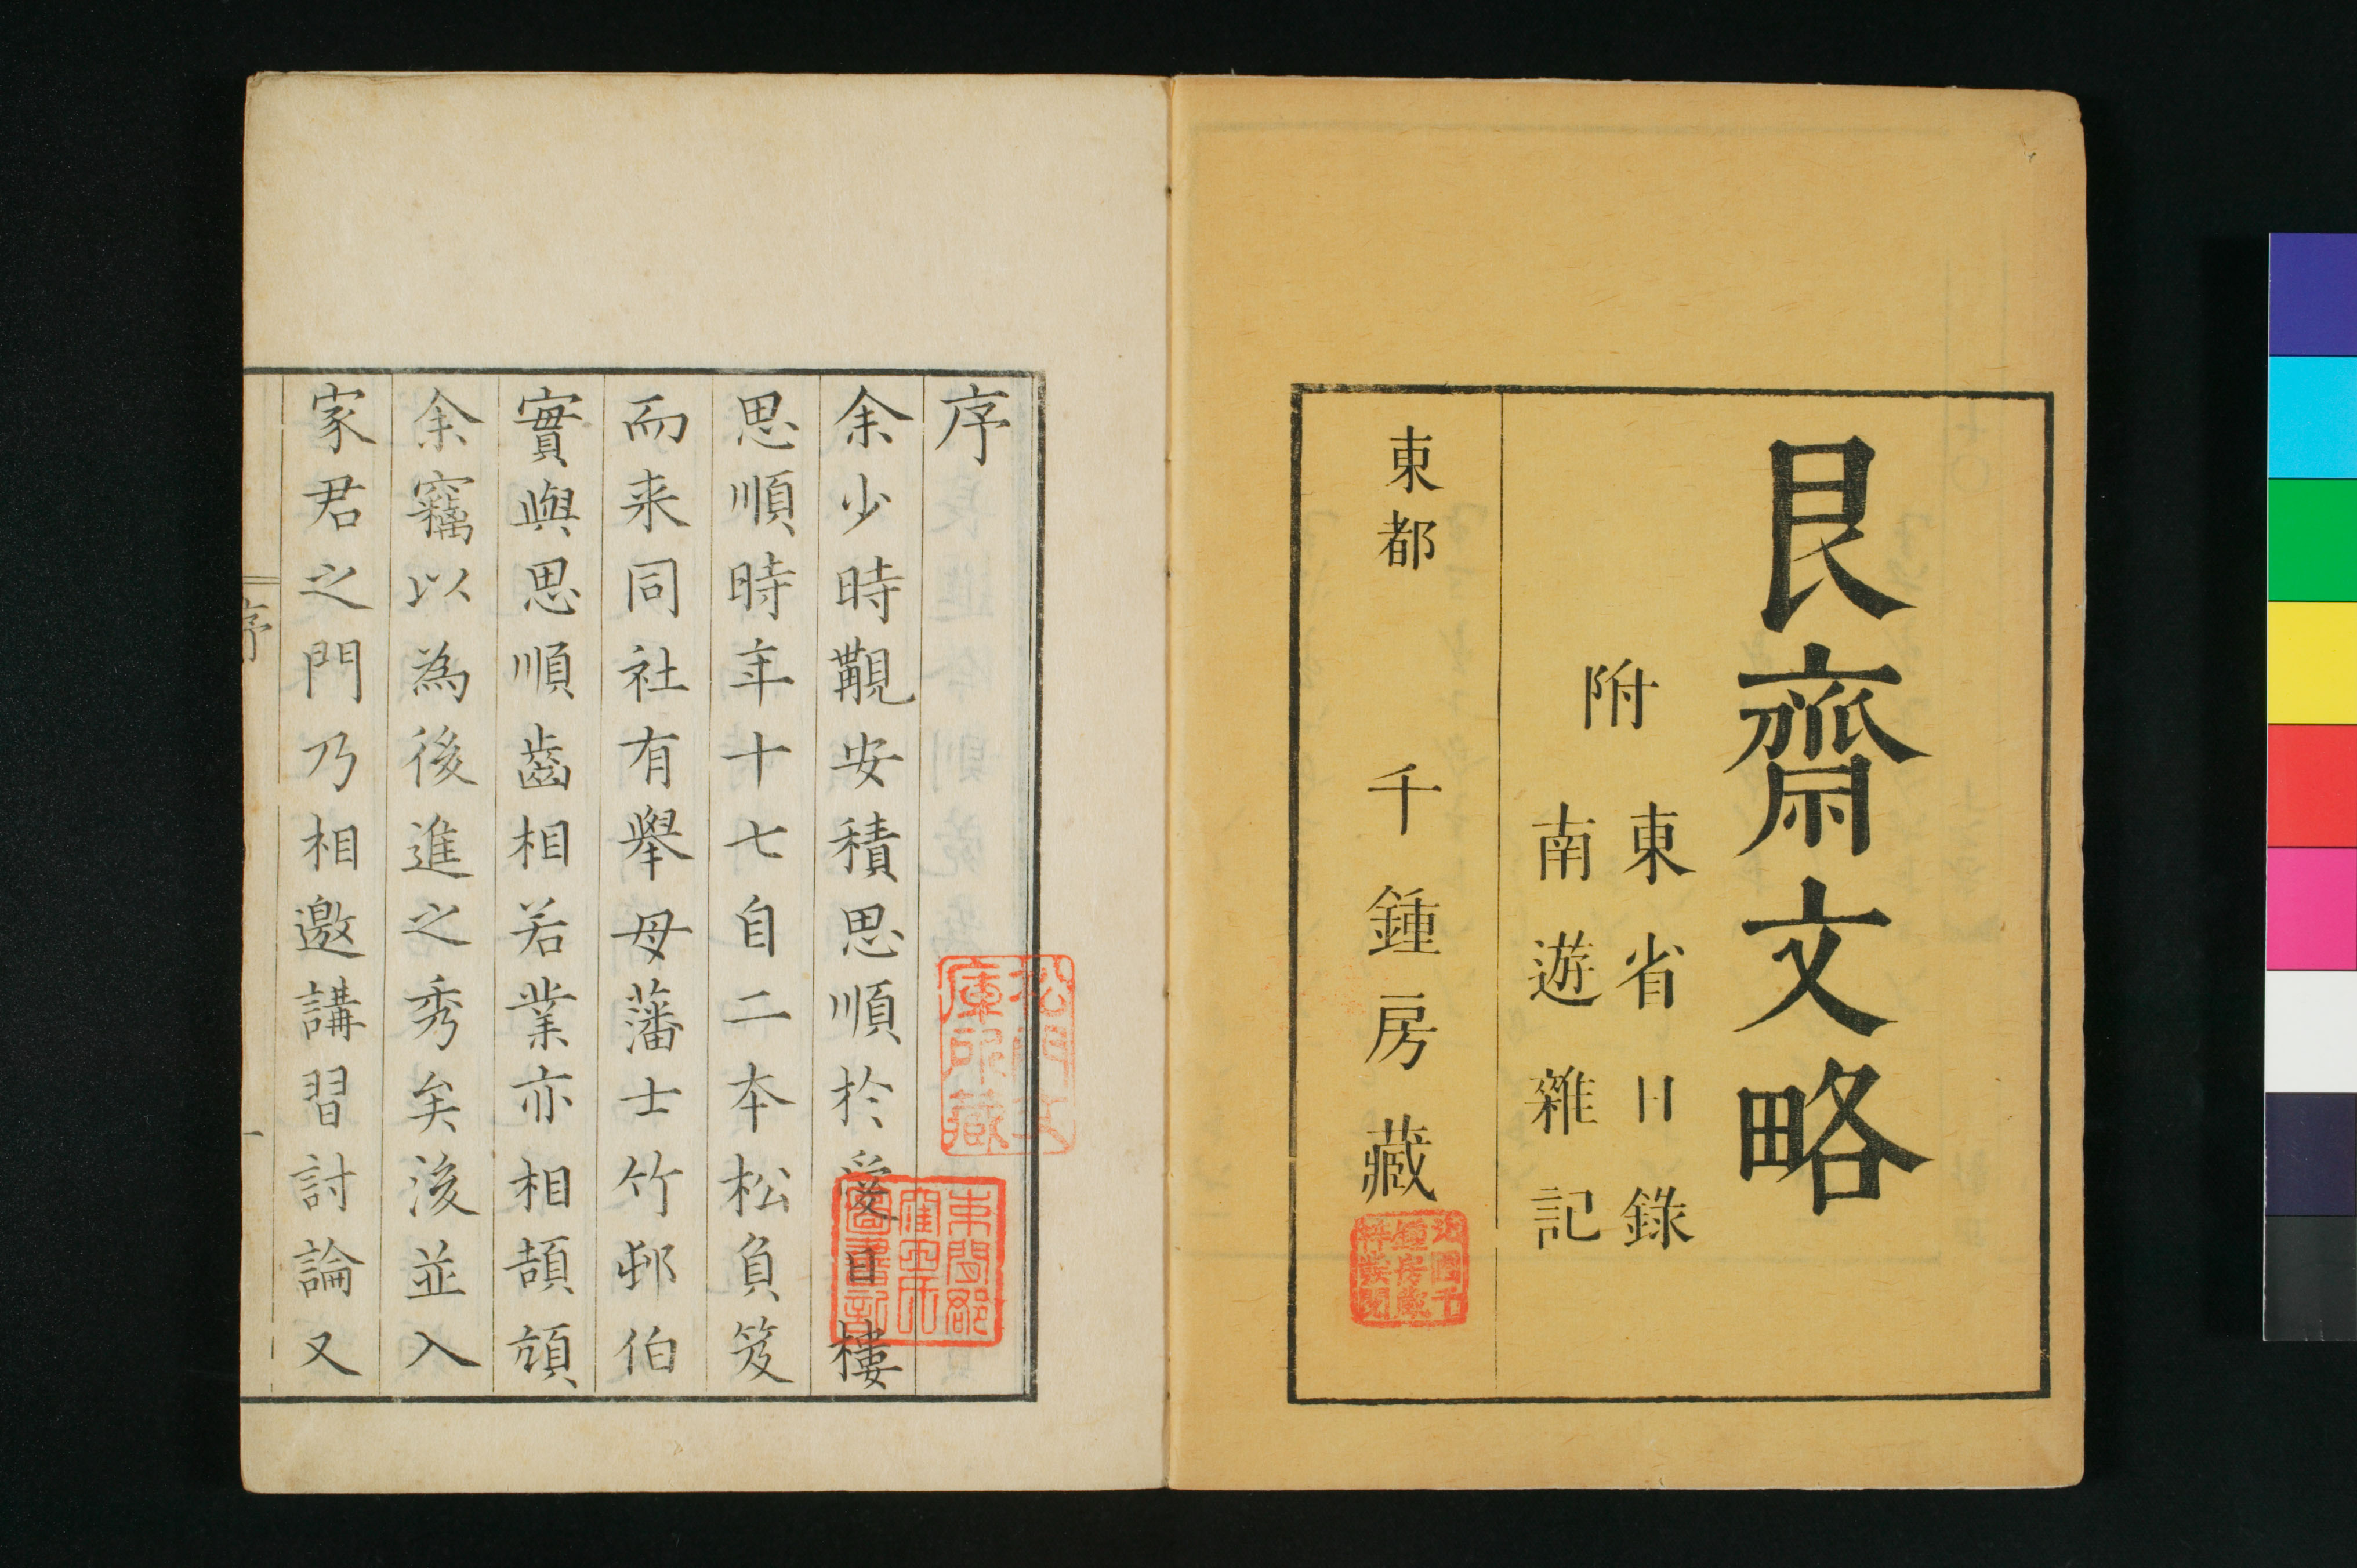 艮齋文略
附
東省日錄
南遊雜記
東都 千鍾房藏
序
余少時觀安積思順於愛日樓
思順時年十七自二本松負笈
而来同社有舉母藩士竹邨伯
實與思順齒相若業亦相頡頏
余竊以為後進之秀矣後並入
家君之門乃相邀講習討論又
序
一